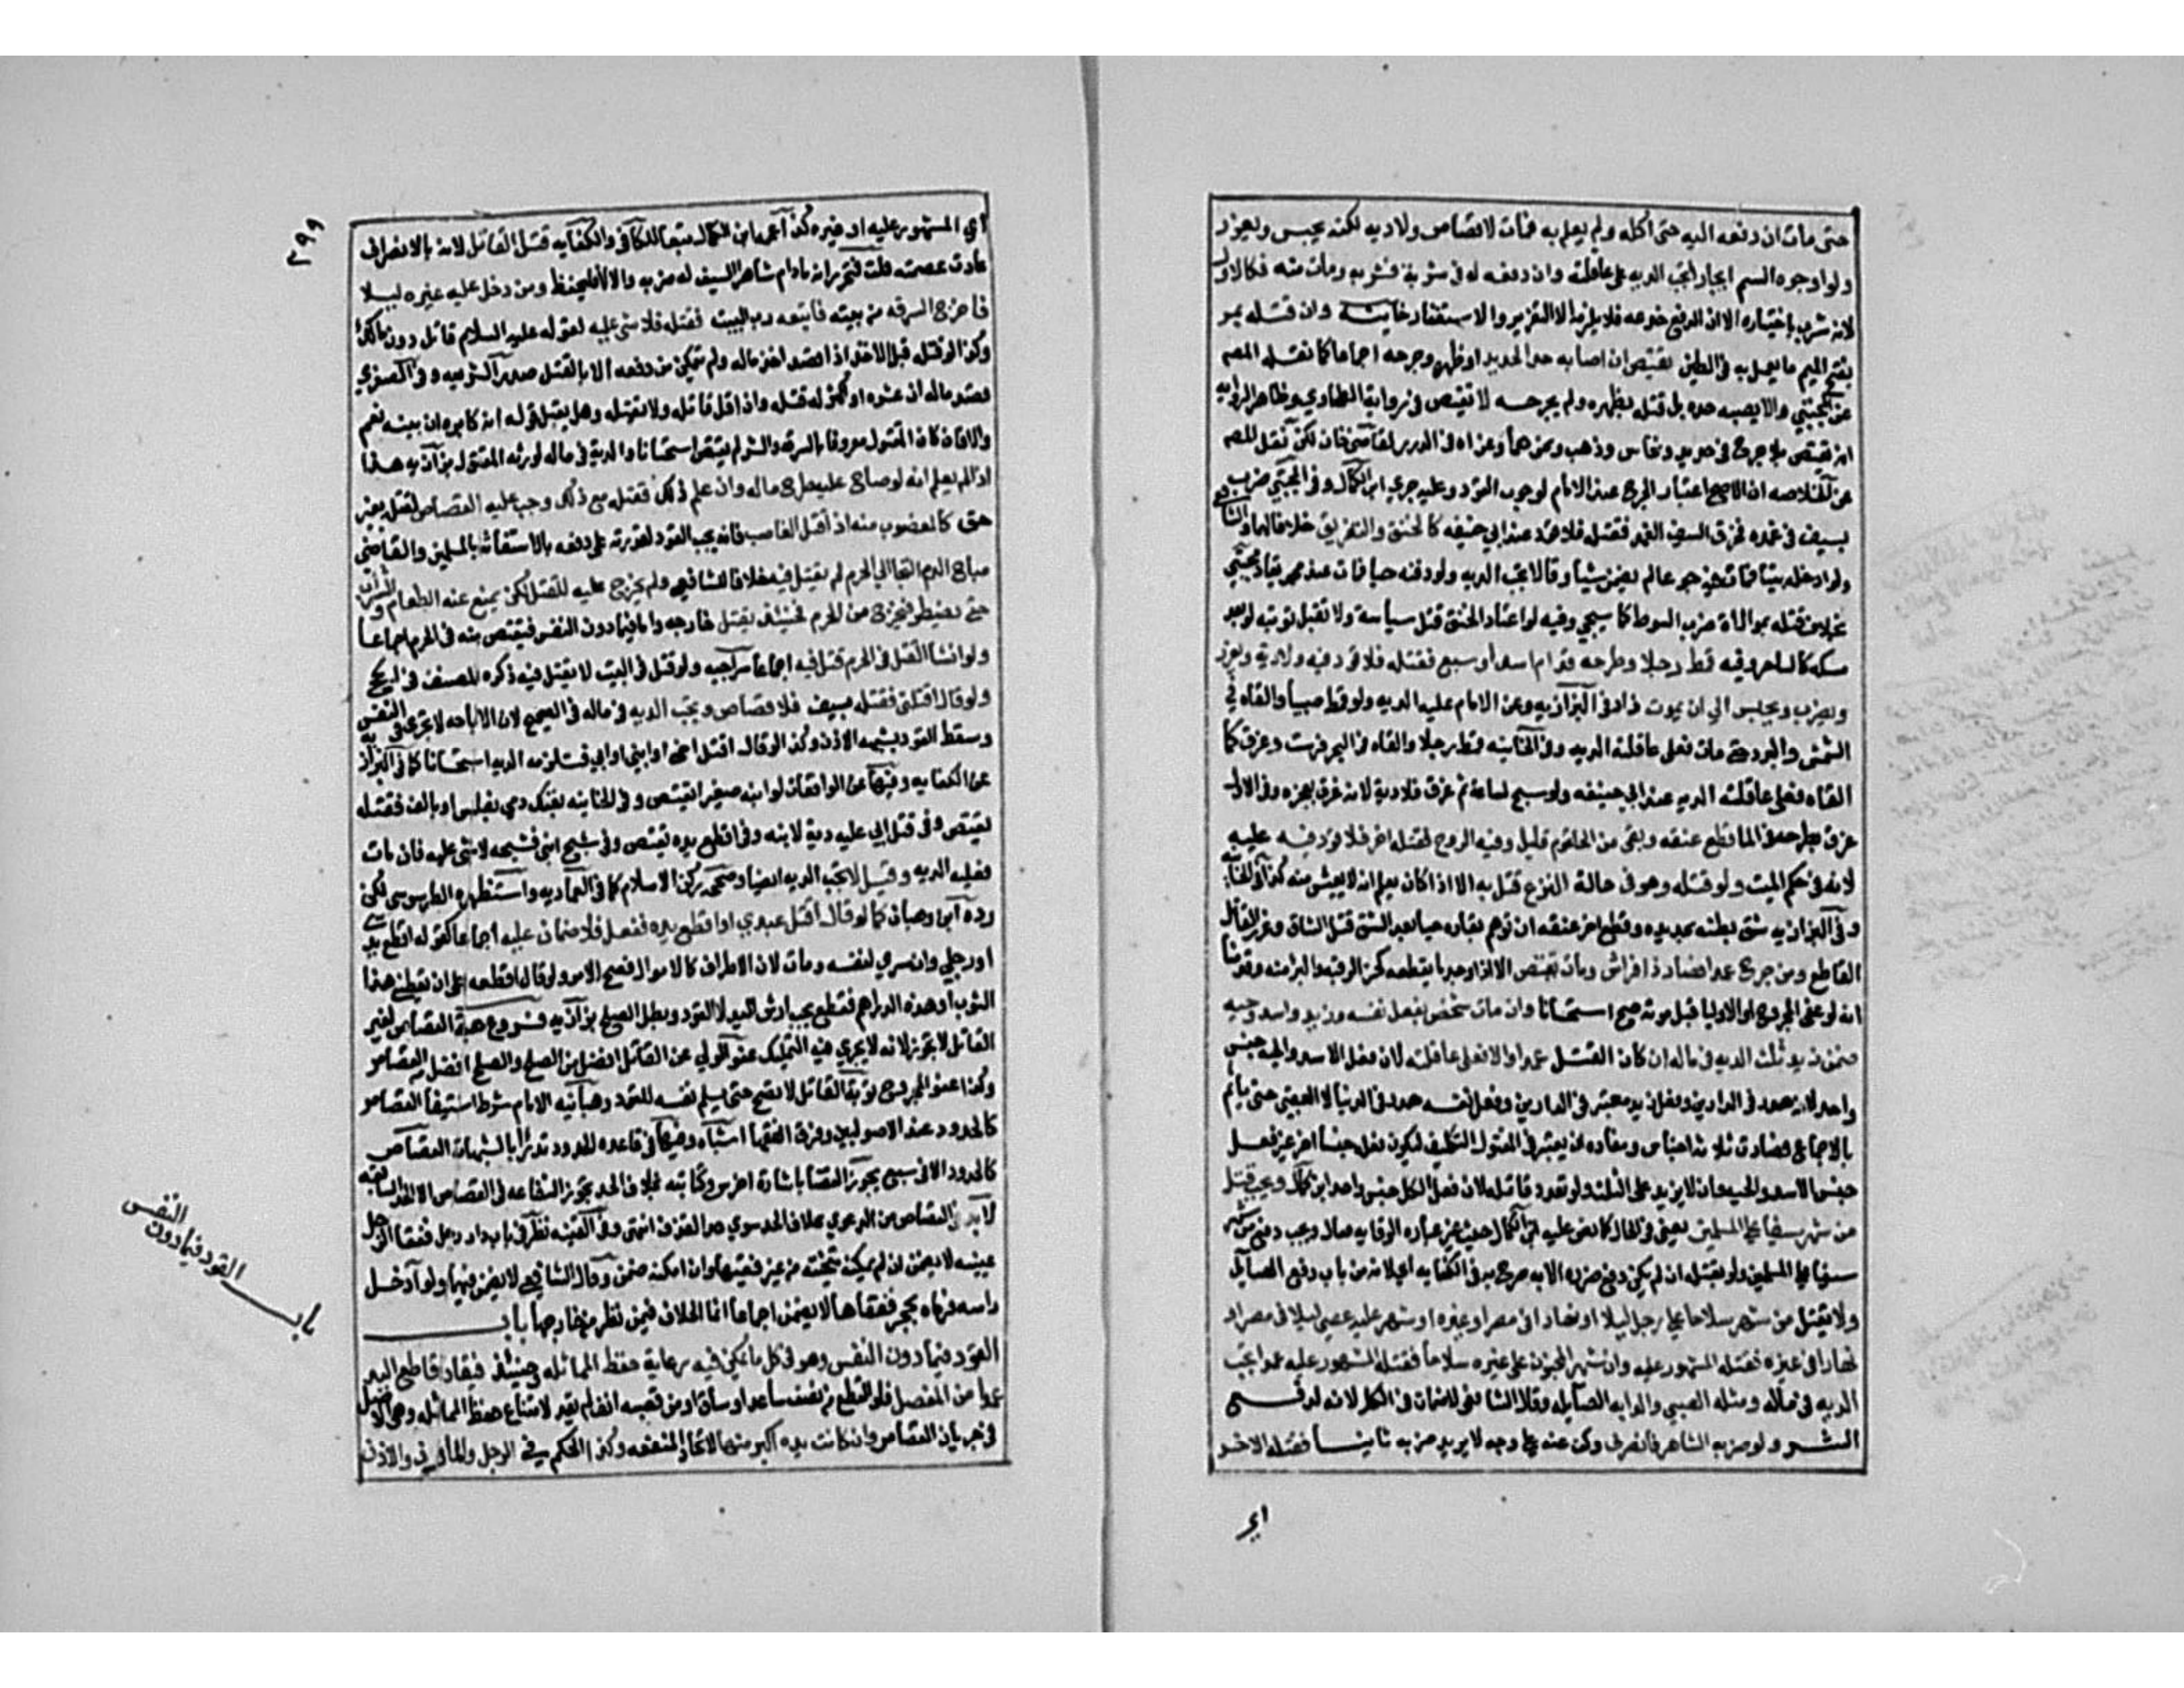 حتى مات ان دفعه اليه حتى اكله ولم يعلم به فمات لا قصاص ولا ديه لكنه يحبس ويعزر
ولو اوجره السم ايجارا تجب الديه على عاقلته وان دفعه له في شربة فشربه ومات منه فكالاول
لانه شربه باختياره الا ان الدفع خدعه فلا يلزم الا التعزير والاستغفار خانيه وان قتله بمر
بفتح الميم ما يعمل به في الطين يقتص ان اصابه حد الحديد او ظهره وجرحه اجماعا كما نقله المصم
عن المجتبي والا يصبه حده بل قتله بظهره ولم يجرحه لا يقتص في رواية الطحاوي وظاهر الروايه
انه يقتص بلا جرح في حديد ونحاس وذهب ونحوهما وعزاه في الدرر لقاضي خان لكن نقل المصم
عن الخلاصه ان الاصح اعتبار الجرح عند الامام لوجوب القود وعليه جري ابن الكمال وفي المجتبي ضرب
بسيف في غمده فخرق السيف الغمد فقتله فلا قود عند ابي حنيفه كالخنق والتغريق خلافا لهما والشافعي
ولو ادخله بيتا فمات فيه جوعا لم يضمن شيأ وقالا تجب الديه ولو دفنه حيا فمات عند محمد يقاد به مجتبي
بخلاف قتله بموالاة ضرب السوط كما سيجي وفيه لو اعتاد الخنق قتل سياسة ولا تقبل توبته لو بعد
مسكه كالساحر وفيه قمط رجلا وطرحه قدام اسد او سبع فقتله فلا قود فيه ولا ديه ويعزر
ويضرب ويحبس الي ان يموت زاد في البزازيه وعن الامام عليه الديه ولو قمط صبيا والقاه في
الشمس والبرد حتى مات فعلى عاقلته الديه وفي الخانيه قمط رجلا والقاه في البحر فرسب وغرق كما
القاه فعلى عاقلته الديه عند ابي حنيفه ولو سبح ساعة ثم غرق فلا دية لانه غرق بعجزه وفي الاول
غرق بطرحه في الماء قطع عنقه وبقي من الحلقوم قليل وفيه الروح فقتله اخر فلا قود فيه عليه
لانه في حكم الميت ولو قتله وهو في حالة النزع قتل به الا اذا كان يعلم انه لا يعيش منه كذا في الخانيه
وفي البزازيه شق بطنه بحديده وقطع اخر عنقه ان توهم بقاؤه حيا بعد الشق قتل الشاق وعزر القاتل
القاطع ومن جرح عمدا فصار ذا فراش ومات يقتص الا اذا وجد ما يقطعه كحز الرقبه والبرء منه وقدمنا
انه لو عفي المجروح او الاوليا قبل موته صح استحسانا وان مات شخص بفعل نفسه وزيد واسد وحيه
ضمن زيد ثلث الديه في ماله ان كان القتل عمدا والا فعلى عاقلته لان فعل الاسد والحيه جنس
واحد لانه هدر في الدارين وفعل زيد معتبر في الدارين وفعل نفسه هدر في الدنيا لا العقبي حتى يأثم
بالاجماع فصارت ثلاثة اجناس ومفاده ان يعتبر في المقتول التكليف ليكون فعل جنسا اخر غير فعل
جنس الاسد والحيه وان لا يزيد على الثلث ولو تعدد قاتله لان فعل الكل جنس واحد ابن كمال ويجب قتل
من شهر سيفا على المسلمين يعني في الحال كما نص عليه ابن الكمال حيث غير عباره الوقايه فقال ويجب دفع من شهر
سيفا على المسلمين ولو بقتله ان لم يمكن دفع ضرره الا به صرح به في الكفايه اي لانه من باب دفع الصايل
ولا يقتل من شهر سلاحا على رجل ليلا او نهارا في مصر او غيره او شهر عليه عصي ليلا في مصر او
نهارا في غيره فقتله المشهور عليه وان شهر المجنون على غيره سلاحا فقتله المشهور عليه عمدا تجب
الديه في ماله ومثله الصبي والدابه الصايله وقال الشافعي لا ضمان في الكل لانه لدفع
الشر ولو ضربه الشاهر فانصرف وكف عنه على وجه لا يريد ضربه ثانيا فقتله الاخر
اي
٣٩٩
اي المشهور عليه او غيره كذا عممه ابن الكمال تبعا للكافي والكفايه قتل القاتل لانه بالانصراف
عادت عصمته قلت فتحرر انه ما دام شاهرا السيف له ضربه والا لا فليحفظ ومن دخل عليه غيره ليلا
فاخرج السرقه من بيته فاتبعه رب البيت فقتله فلا شي عليه لقوله عليه السلام قاتل دون مالك
وكذا لو قتله قبل الاخذ اذا قصد اخذ ماله ولم يتمكن من دفعه الا بالقتل صدر الشريعه وفي الصغري
قصد ماله ان عشره او اكثر له قتله وان اقل قاتله ولا يقتله وهل يقبل قوله انه كابره ان ببينه نعم
والا فان كان المقتول معروفا بالسرقه والشر لم يقتص استحسانا والدية في ماله لورثه المقتول بزازيه هذا
اذا لم يعلم انه لو صاح عليه طرح ماله وان علم ذلك فقتله مع ذلك وجب عليه القصاص لقتله بغير
حق كالمغصوب منه اذا قتل الغاصب فانه يجب القود لقدرته على دفعه بالاستغاثه بالمسلمين والقاضي
مباح الدم التجا الي الحرم لم يقتل فيه خلافا للشافعي ولم يخرج عليه للقتل لكن يمنع عنه الطعام والشراب
حتى يضطر فيخرج من الحرم فحينئذ يقتل خارجه واما فيما دون النفس فيقتص منه في الحرم اجماعا
ولو انشا القتل في الحرم قتل فيه اجماعا سراجيه ولو قتل في البيت لا يقتل فيه ذكره المصنف في الحج
ولو قال اقتلني فقتله بسيف فلا قصاص وتجب الديه في ماله في الصحيح لان الاباحه لا تجري في النفس
وسقط القود بشبهة الاذن وكذا لو قال اقتل اخي او ابني او ابي فتلزمه الديه استحسانا كما في البزازيه
عن الكفايه وفيها عن الواقعات لو ابنه صغيرا يقتص وفي الخانيه بعتك دمي بفلس او بالف فقتله
يقتص وفي اقتل ابي عليه دية لابنه وفي اقطع يده يقتص وفي شج ابني فشجه لا شي عليه فان مات
فعليه الديه وقيل لا تجب الديه ايضا وصححه ركن الاسلام كما في العماديه واستظهره الطرسوسي لكن
رده ابن وهبان كما لو قال اقتل عبدي او اقطع يده ففعل فلا ضمان عليه اجماعا كقوله اقطع يدي
او رجلي وان سري لنفسه ومات لان الاطراف كالاموال فصح الامر ولو قال اقطعه على ان تعطيني هذا
الثوب او هذه الدراهم فقطع يجب ارش اليد لا القود وبطل الصلح بزازيه فروع هبة القصاص لغير
القاتل لا تجوز لانه لا يجري فيه التمليك عفو الولي عن القاتل افضل من الصلح والصلح افضل من القصاص
وكذا عفو المجروح توبة القاتل لا تصح حتى يسلم نفسه للقود وهبانيه الامام شرط استيفا القصاص
كالحدود عند الاصوليين وفرق الفقها اشباه وفيها في قاعده الحدود تدرأ بالشبهات القصاص
كالحدود الا في سبع يجوز القضا باشارة اخرس وكتابته بخلاف الحد تجوز الشفاعه في القصاص لا الحد السابعه
لا بد في القصاص من الدعوي بخلاف الحد سوي حد القذف انتهى وفي القنيه نظر في باب دار رجل ففقا الرجل
عينه لا يضمن ان لم يمكنه تنحيته من غير فقئها وان امكنه ضمن وقال الشافعي لا يضمن فيهما ولو ادخل
راسه فرماه بحجر ففقاها لا يضمن اجماعا انما الخلاف فيمن نظر من خارجها باب
القود فيما دون النفس وهو في كل ما يمكن فيه رعاية حفظ المماثله وحينئذ فيقاد قاطع اليد
عمدا من المفصل فلو القطع من نصف ساعد او ساق او من قصبه انف لم يقد لامتناع حفظ المماثله وهي الاصل
في جريان القصاص وان كانت يده اكبر منها لاتحاد المنفعه وكذا الحكم في الرجل والمارن والاذن
باب القود فيما دون النفس